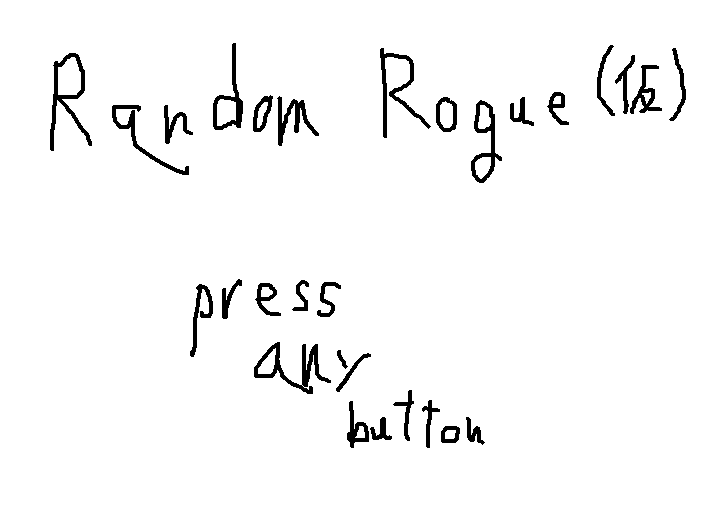 Random Rogue (仮)
press
any
button